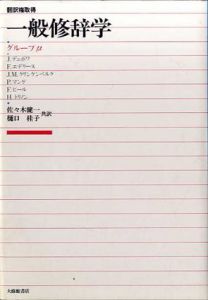 翻訳権取得
一般修辞学
グループμ
J.デュボワ
F.エデリーヌ
J.M.クリンケンベルク
P.マンゲ
F.ピール
H.トリノン
佐々木健一
樋口桂子
共訳
大修館書店